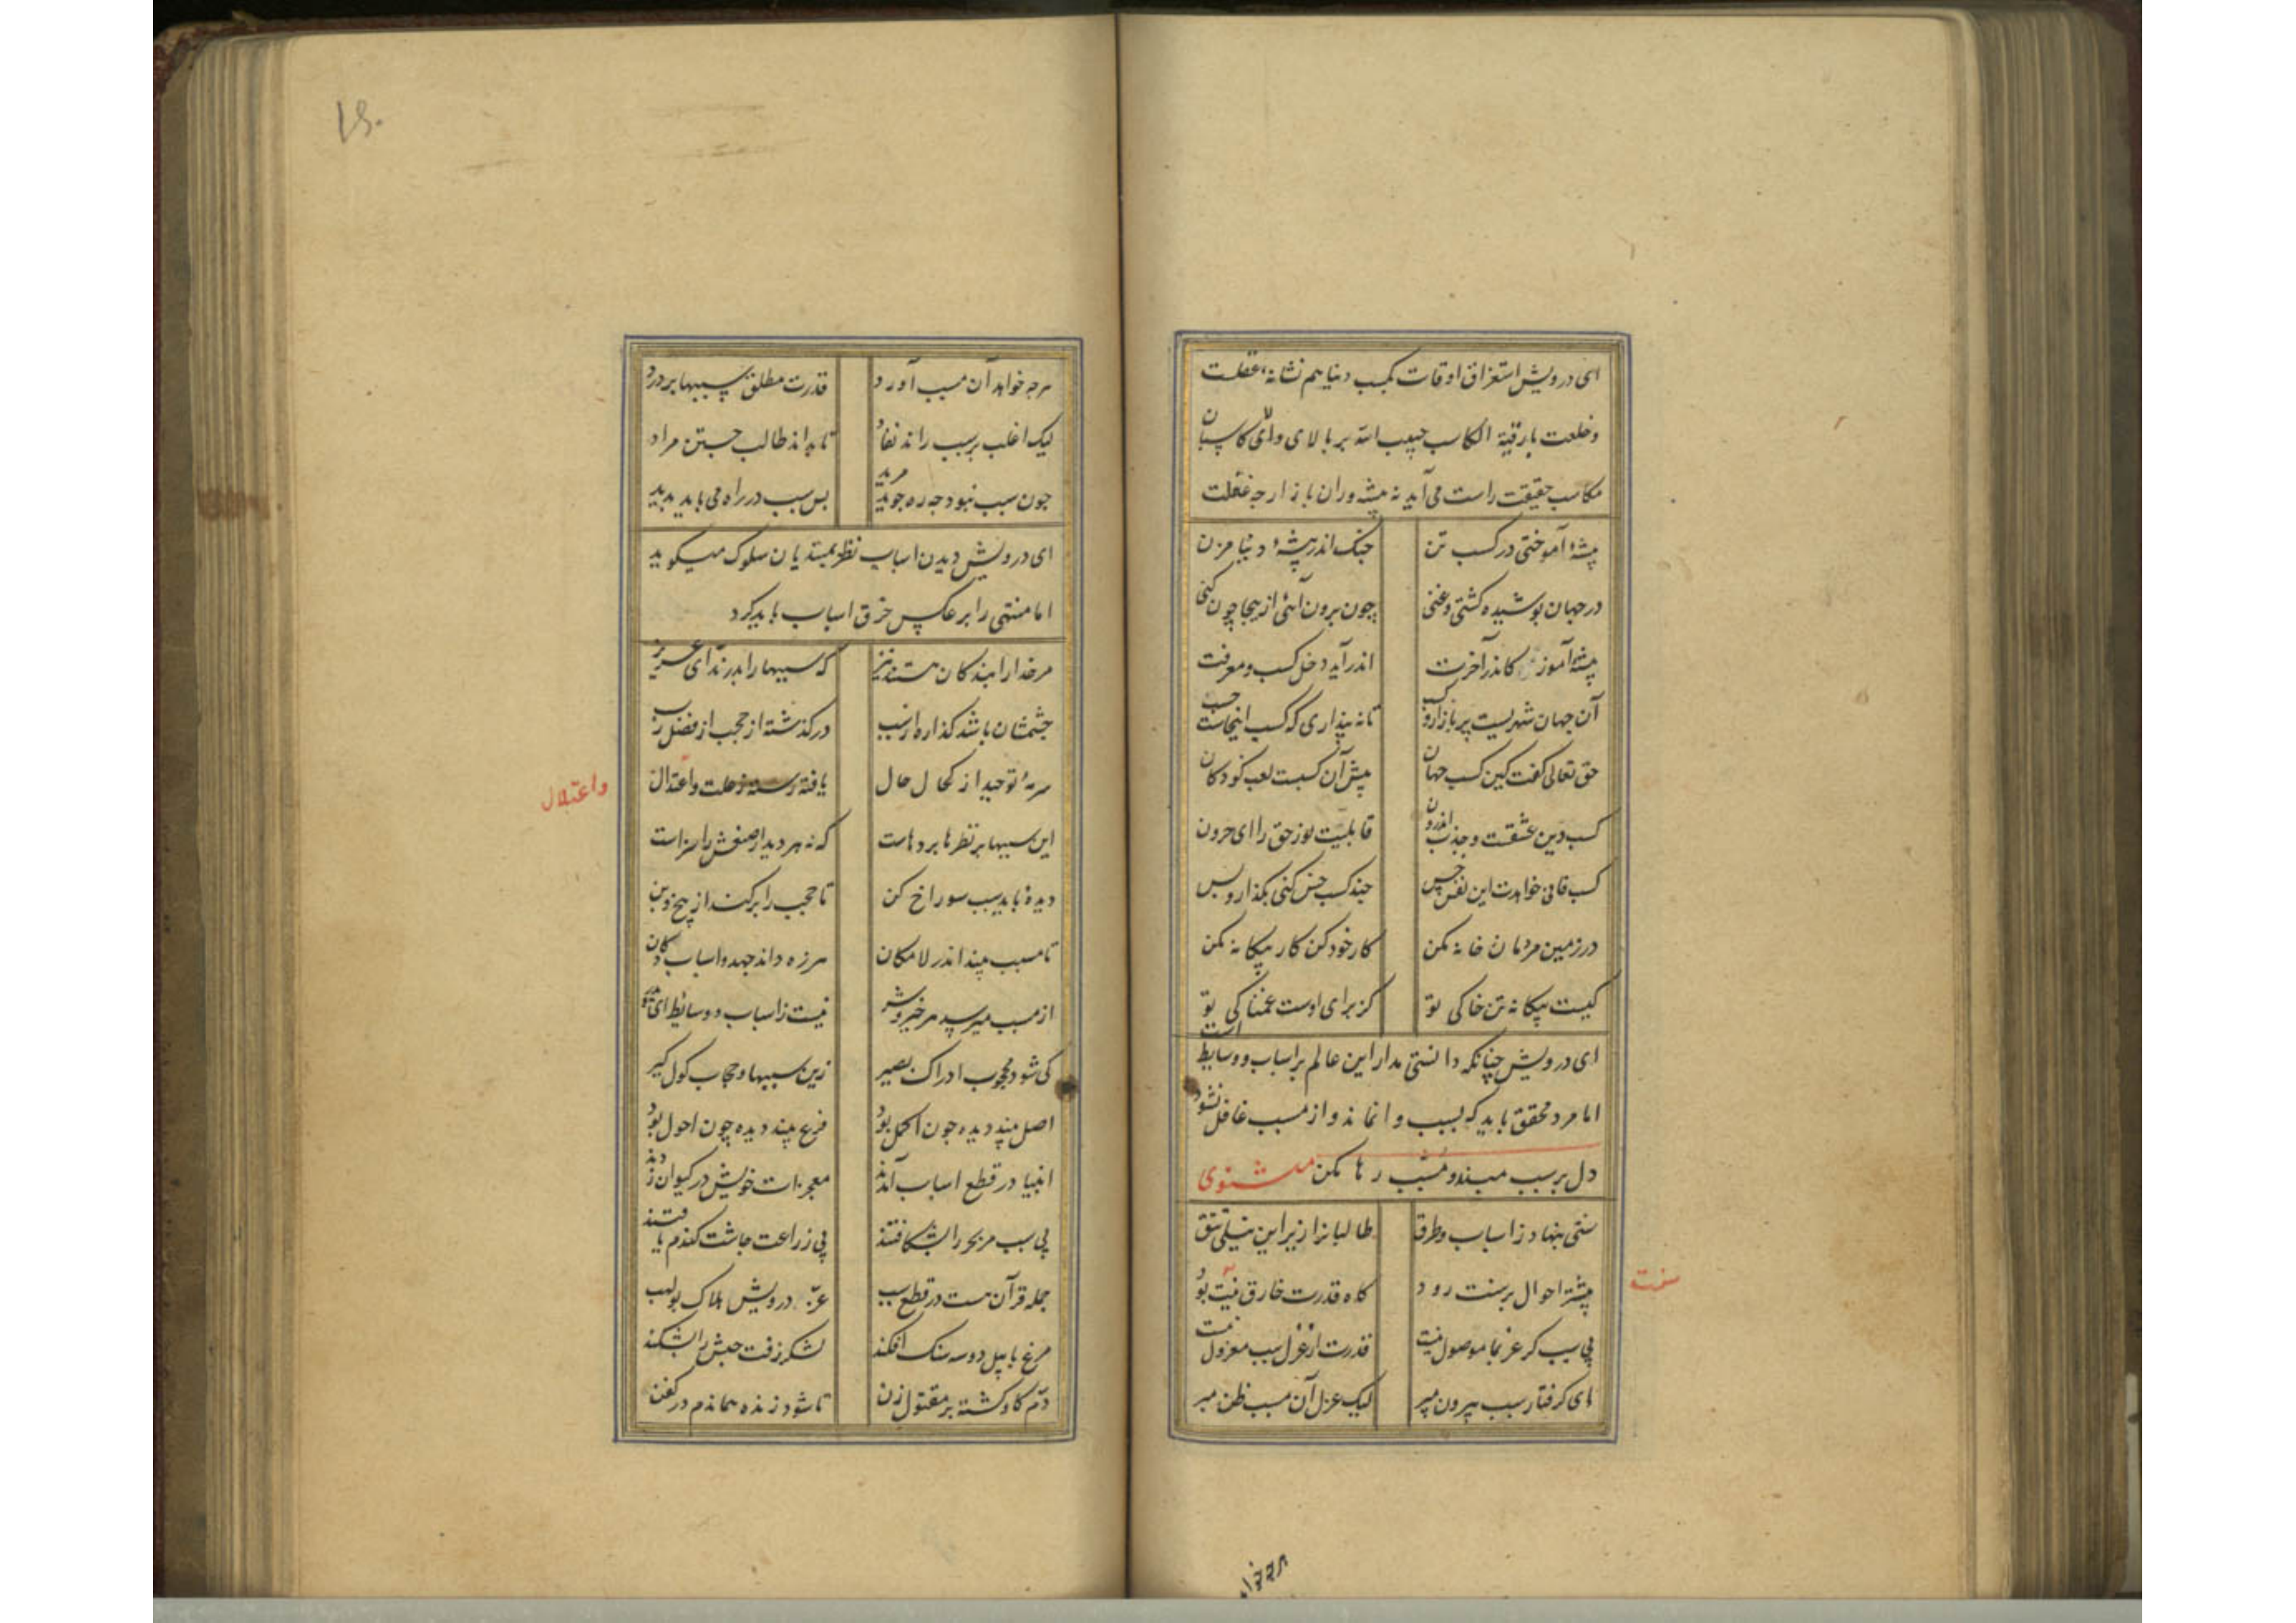 ای درویش استغراق اوقات بکسب دنیا هم نشانهٔ غفلت
و خلعت بارقیة الکاسب حبیب الله بر بالای والای کاسبان
مکاسب حقیقت راست می آید نه پیشه وران بازارچه غفلت
پیشهٔ آموختی در کسب تن چنک اندر پیشهٔ دنیا مزن
در جهان پوشیده کشتی و غنی چون برون آئی ازینجا چون کنی
پیشهٔ آموز کاندر آخرت اندر آید دخل کسب و معرفت
آن جهان شهریست پر بازار و کسب تا نه پنداری که کسب اینجاست حسب
حق تعالی کفت کین کسب جهان پیش آن کسبست لعب کودکان
کسب دین عشقست و جذب اندرون قابلیت نور حق را ای حرون
کسب فانی خواهدت این نفس خس چند کسب خس کنی بکذار و بس
در زمین مردمان خانه مکن کار خود کن کار بیکانه مکن
کیست بیکانه تن خاکی تو کز برای اوست غمناکی تو
ای درویش چنانکه دانستی مدار این عالم بر اسباب و وسایط است
اما مرد محقق باید که بسبب وا نماند و از مسبب غافل نشود
دل بر سبب مبند و مسبب رها مکن مثنوی
سنتی بنهاد ز اسباب و طرق طالبانرا زیر این نیلی تتق
بیشتر احوال بر سنت رود کاه قدرت خارق سنت بود
سنت
بی سبب کر عز بما موصول نیست قدرت از عزل سبب معزول نیست
ای کرفتار سبب بیرون مپر لیک عزل آن مسبب ظن مبر
هرچه خواهد
۱۶۰
هرچه خواهد آن مسبب آورد قدرت مطلق سببها بر درد
لیک اغلب بر سبب راند نفاد تا بداند طالب جستن مراد
چون سبب نبود چه ره جوید مرید پس سبب در راه می باید پدید
ای درویش دیدن اسباب نظر بمبتدیان سلوک میکوید
اما منتهی را بر عکس خرق اسباب باید کرد
مر خدا را بندکان هستند نیز که سببها را بدرند ای عزیز
چشمشان باشد کذاره از سبب در کذشته از حجب از فضل رب
سرمهٔ توحید از کحال حال یافته رسته ز علت و اعتدال
واعتلال
این سببها بر نظرها پردهاست که نه هر دیدار صنعش را سزاست
دیدهٔ باید سبب سوراخ کن تا حجب را بر کند از بیخ و بن
تا مسبب بیند اندر لامکان هرزه داند جهد و اسباب دکان
از مسبب میرسد هر خیر و شر نیست ز اسباب و وسائط ای پدر
کی شود محجوب ادراک بصیر زین سببها و حجاب کول کیر
اصل بیند دیده چون اکمل بود فرع بیند دیده چون احول بود
انبیا در قطع اسباب آمدند معجزات خویش در کیوان زدند
بی سبب مر بحر را بشکافتند بی زراعت چاشت کندم یافتند
جمله قرآن هست در قطع سبب عز درویش هلاک بولهب
مرغ بابیل دو سه سنک افکند لشکر زفت حبش را بشکند
دم کاو کشته بر مقتول زن تا شود زنده هماندم در کفن